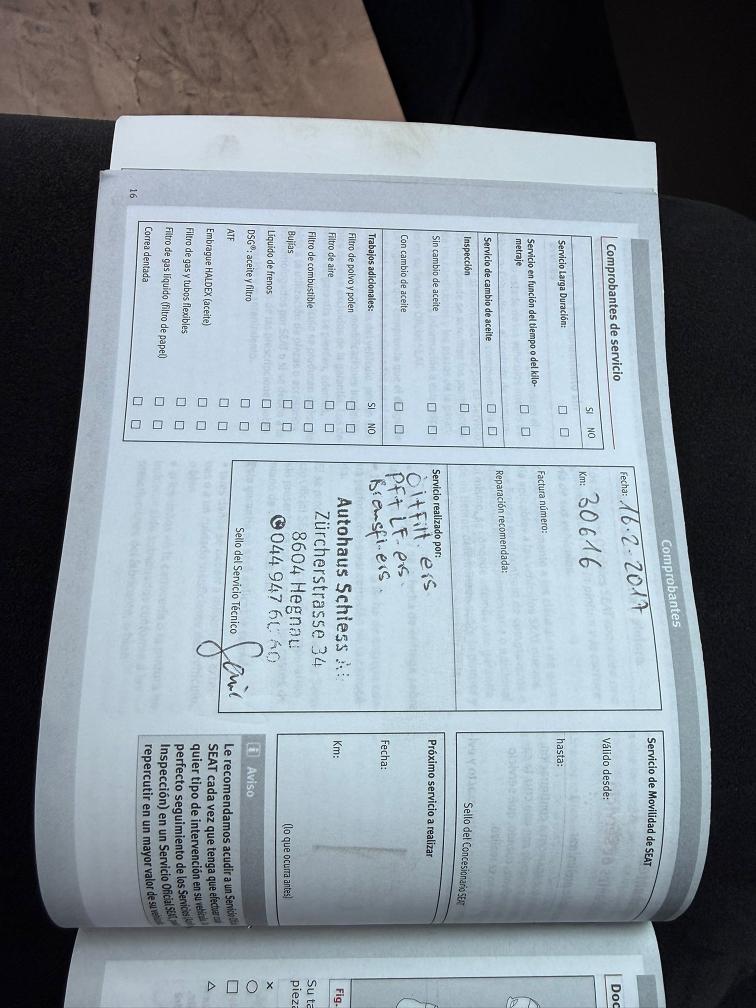 Comprobantes
Comprobantes de servicio
SI NO
Servicio Larga Duración:
Servicio en función del tiempo o del kilo-
metraje
Servicio de cambio de aceite
Inspección
Sin cambio de aceite
Con cambio de aceite
Trabajos adicionales: SI NO
Filtro de polvo y polen
Filtro de aire
Filtro de combustible
Bujías
Líquido de frenos
DSG®: aceite y filtro
ATF
Embrague HALDEX (aceite)
Filtro de gas y tubos flexibles
Filtro de gas líquido (filtro de papel)
Correa dentada
16
Fecha: 16.2.2017
Km: 30616
Factura número:
Reparación recomendada:
Servicio realizado por:
Autohaus Schiess
Zürcherstrasse 34
8604 Hegnau
044 947
Sello del Servicio Técnico
Servicio de Movilidad de SEAT
Válido desde:
hasta:
Sello del Concesionario SEAT
Próximo servicio a realizar
Fecha:
Km:
(lo que ocurra antes)
i Aviso
Le recomendamos acudir a un Servicio
SEAT cada vez que tenga que efectuar
quier tipo de intervención en su vehículo
perfecto seguimiento de los Servicios
Inspección) en un Servicio Oficial SEAT
repercutir en un mayor valor de su
Doc
Fig.
Su ta
pieza